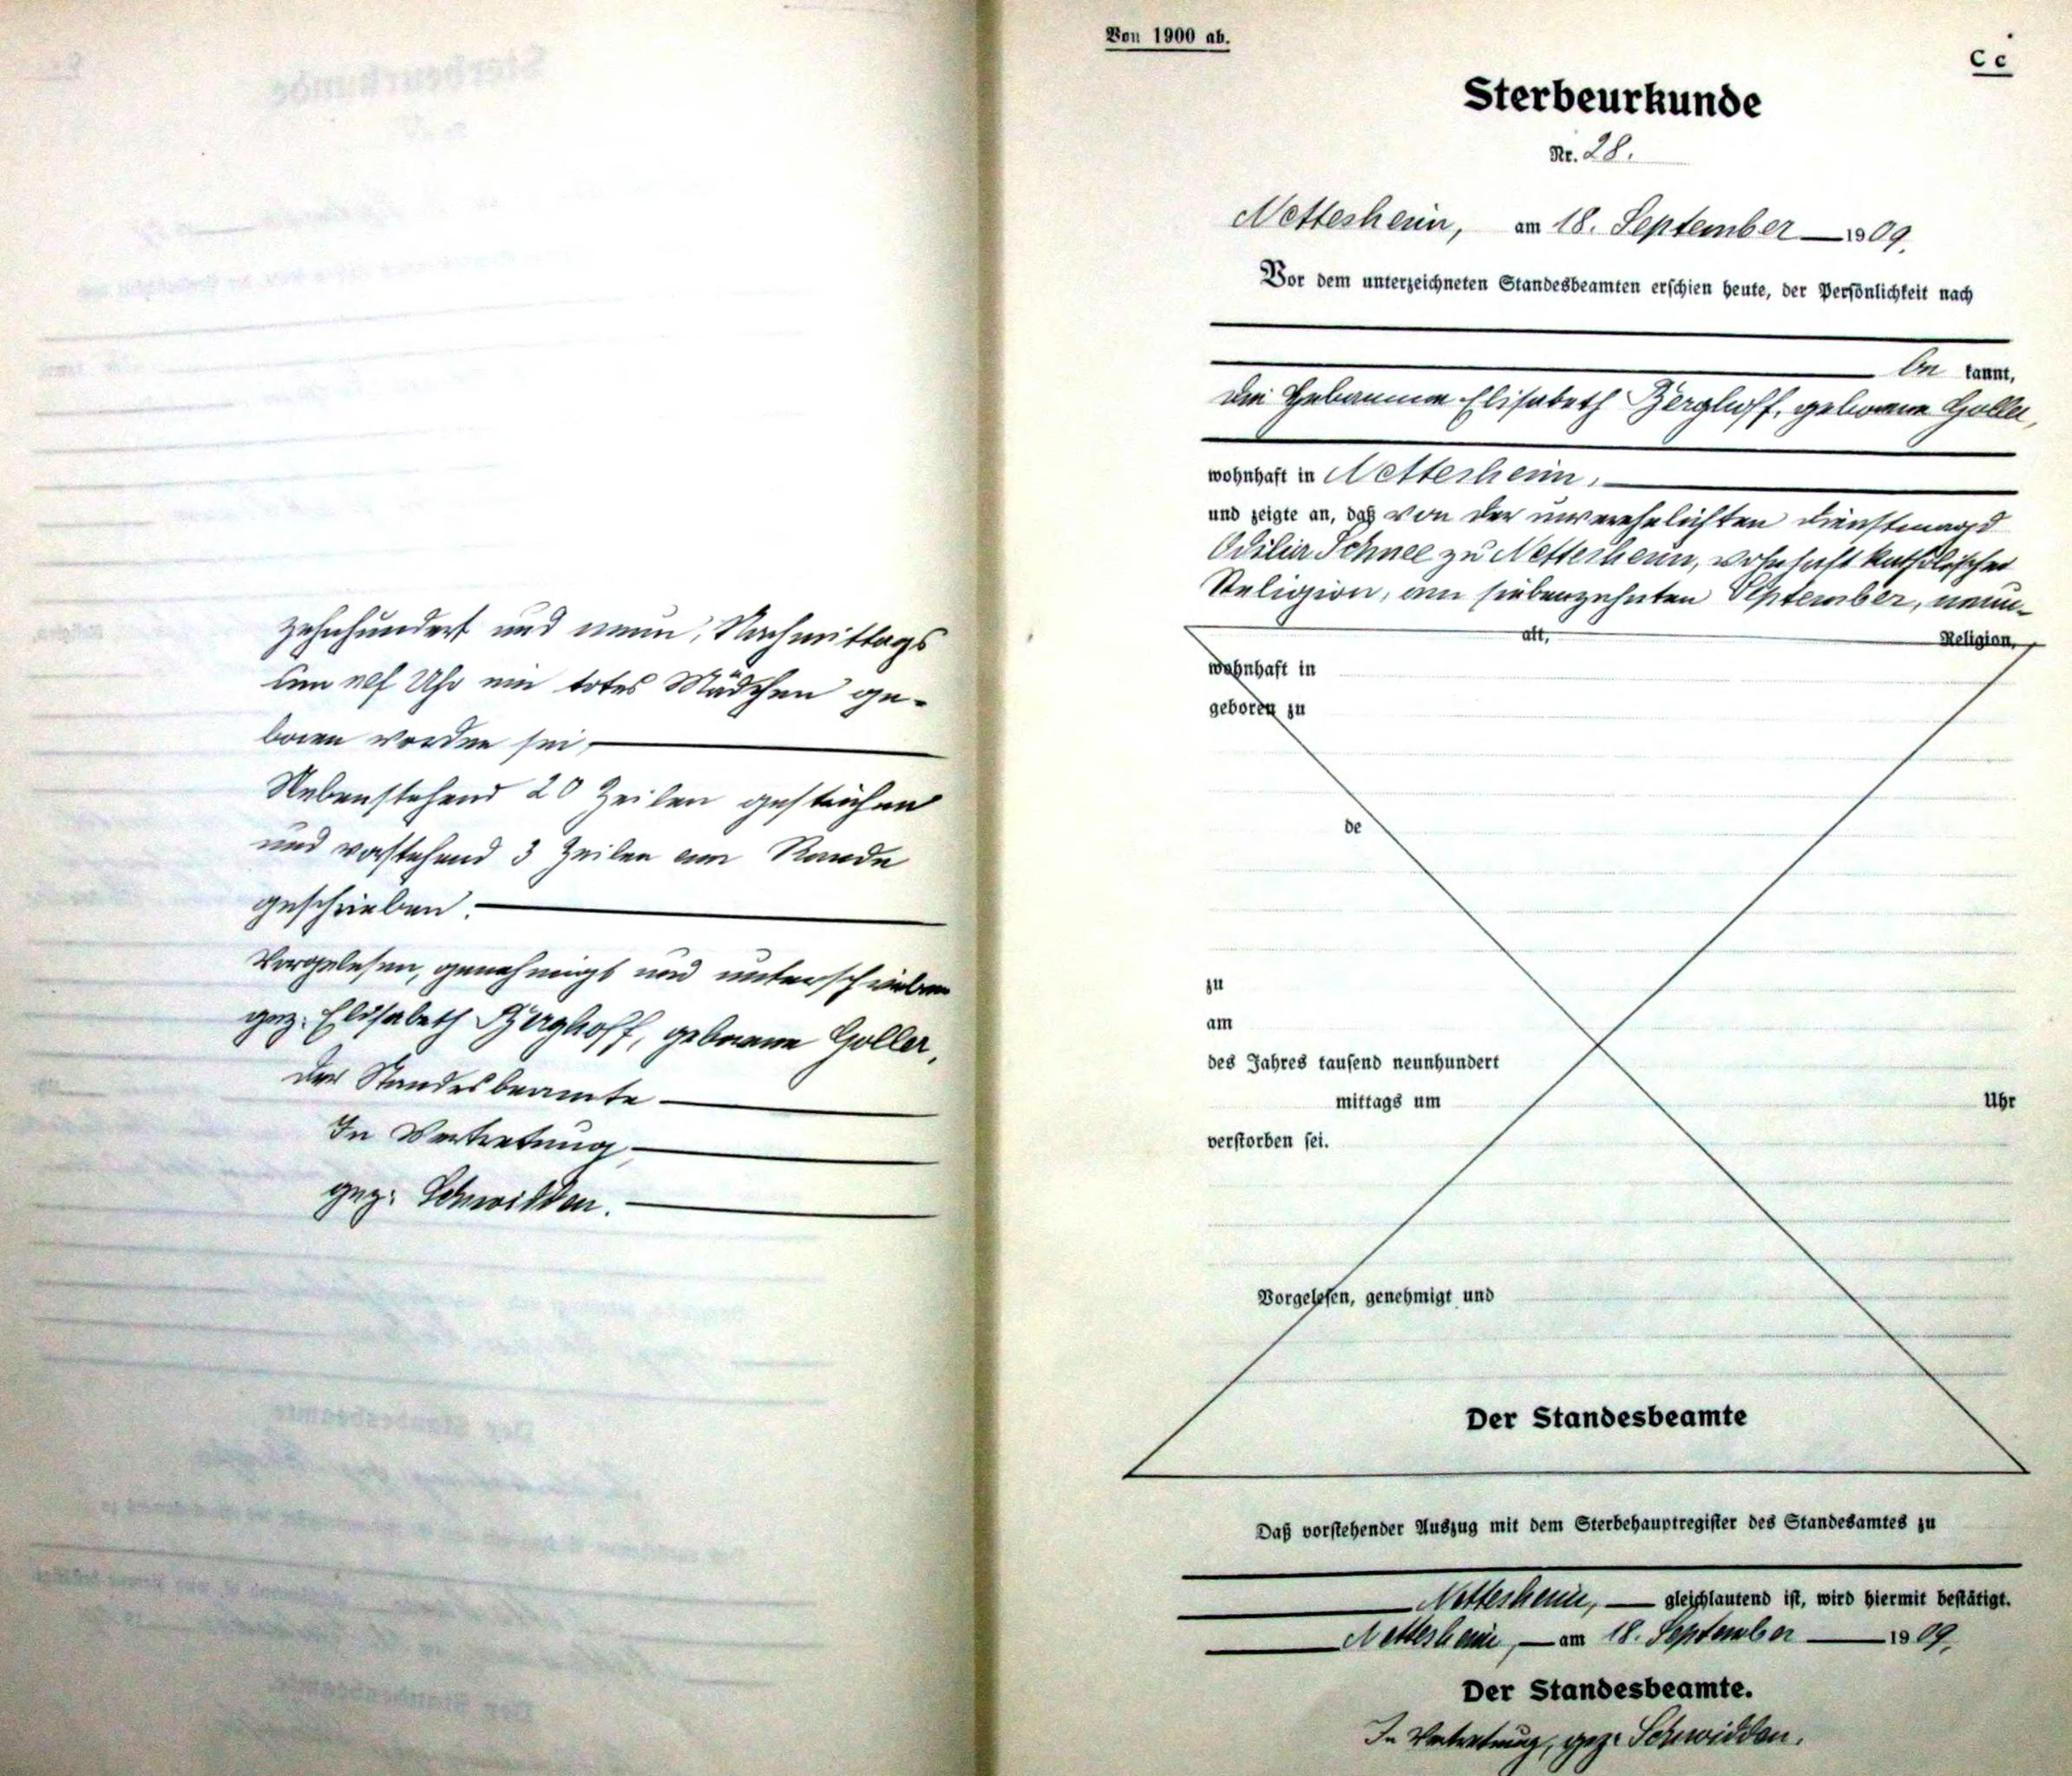 zehnhundert und neun, Nachmittags
um elf Uhr ein totes Mädchen ge-
boren worden sei,
Nebenstehend 20 Zeilen gestrichen
und vorstehend 3 Zeilen am Rande
geschrieben.
Vorgelesen, genehmigt und unterschrieben
gez. Elisabeth Berghoff, geborene Goller,
Der Standesbeamte
In Vertretung,
gez. Schwidden.
Von 1900 ab.
C c
Sterbeurkunde
Nr. 28.
Nettersheim, am 18. September 1909.
Vor dem unterzeichneten Standesbeamten erschien heute, der Persönlichkeit nach
be kannt,
die Hebamme Elisabeth Berghoff, geborene Goller,
wohnhaft in Nettersheim,
und zeigte an, daß von der unverehelichten Dienstmagd
Odilia Schnee zu Nettersheim, wohnhaft katholischer
Religion, am siebenzehnten September, neun-
alt, Religion,
wohnhaft in
geboren zu
de
zu
am
des Jahres tausend neunhundert
mittags um Uhr
verstorben sei.
Vorgelesen, genehmigt und
Der Standesbeamte
Daß vorstehender Auszug mit dem Sterbehauptregister des Standesamtes zu
Nettersheim, gleichlautend ist, wird hiermit bestätigt.
Nettersheim, am 18. September 1909.
Der Standesbeamte.
In Vertretung, gez. Schwidden.